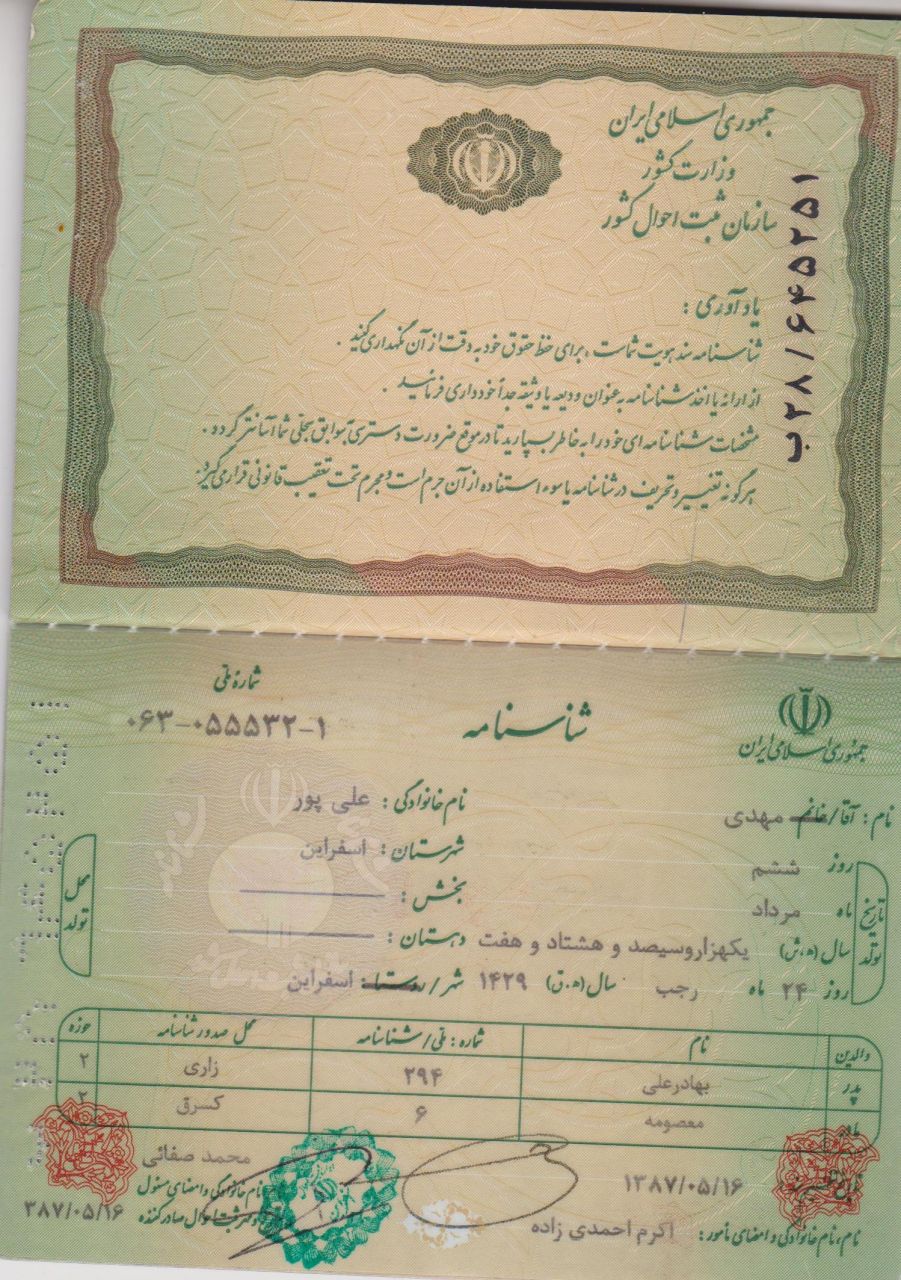 جمهوری اسلامی ایران
وزارت کشور
سازمان ثبت احوال کشور
ب۲۸/۶۴۵۲۵۱
یادآوری :
شناسنامه سند هویت شماست ، برای حفظ حقوق خود به دقت از آن نگهداری کنید .
از ارائه یا اخذ شناسنامه به عنوان ودیعه یا وثیقه جداً خودداری فرمائید .
مشخصات شناسنامه ای خود را به خاطر بسپارید تا در موقع ضرورت دسترسی به سوابق سجلی شما آسانتر گردد .
هرگونه تغییر و تحریف در شناسنامه یا سوء استفاده از آن جرم است و مجرم تحت تعقیب قانونی قرار می گیرد.
جمهوری اسلامی ایران
شناسنامه
شماره ملی
۰۶۳-۰۵۵۵۳۲-۱
نام : آقا/خانم مهدی
نام خانوادگی : علی پور
تاریخ تولد
روز ششم
ماه مرداد
سال (ه.ش) یکهزاروسیصد و هشتاد و هفت
روز ۲۴ ماه رجب سال (ه.ق) ۱۴۲۹
محل تولد
شهرستان : اسفراین
بخش :
دهستان :
شهر / روستا : اسفراین
والدین نام شماره : ملی/شناسنامه محل صدور شناسنامه حوزه
پدر بهادرعلی ۲۹۴ زاری ۲
مادر معصومه ۶ کسرق ۲
۱۳۸۷/۰۵/۱۶
نام ، نام خانوادگی و امضای مأمور : اکرم احمدی زاده
محمد صفائی
نام خانوادگی و امضای مسئول
صادر کننده
۳۸۷/۰۵/۱۶